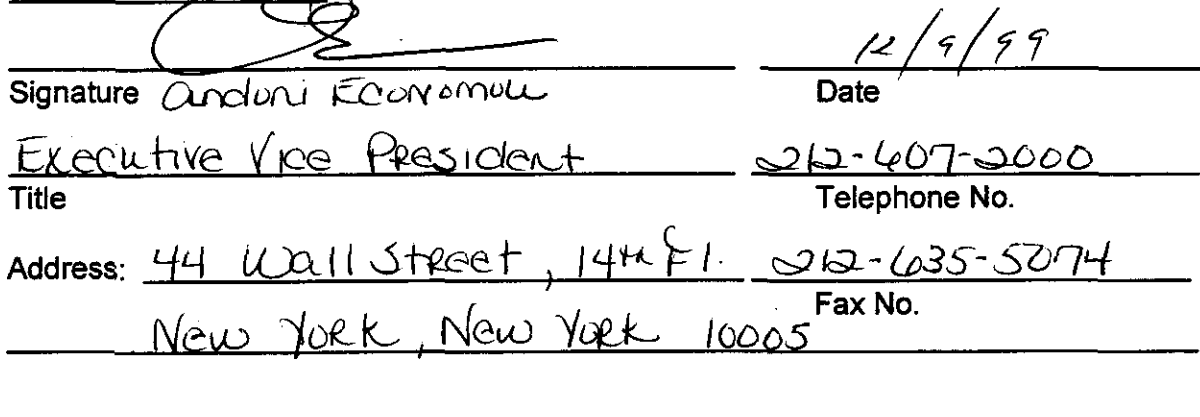 12/9/99
Signature Andoni Economou Date
Executive Vice President 212-607-2000
Title Telephone No.
Address: 44 Wall Street, 14th Fl. 212-635-5074
Fax No.
New York, New York 10005